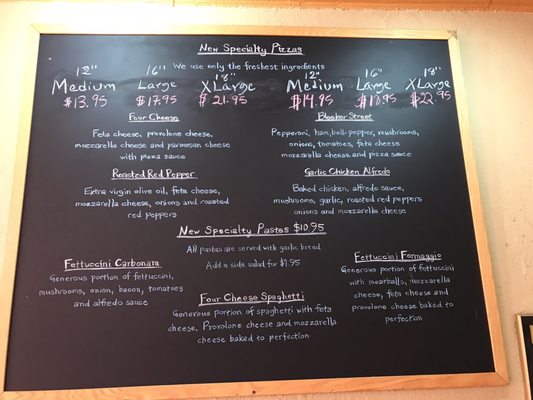 New Specialty Pizzas
We use only the freshest ingredients
12" 16" 18" 12" 16" 18"
Medium Large XLarge Medium Large XLarge
$13.95 $17.95 $21.95 $14.95 $18.95 $22.95
Four Cheese
Feta cheese, provolone cheese,
mozzarella cheese and parmesan cheese
with pizza sauce
Bleeker Street
Pepperoni, ham, bell pepper, mushrooms,
onions, tomatoes, feta cheese
mozzarella cheese and pizza sauce
Roasted Red Pepper
Extra virgin olive oil, feta cheese,
mozzarella cheese, onions and roasted
red peppers
Garlic Chicken Alfredo
Baked chicken, alfredo sauce,
mushrooms, garlic, roasted red peppers
onions and mozzarella cheese
New Specialty Pastas $10.95
All pastas are served with garlic bread
Add a side salad for $1.95
Fettuccini Carbonara
Generous portion of fettuccini,
mushrooms, onion, bacon, tomatoes
and alfredo sauce
Four Cheese Spaghetti
Generous portion of spaghetti with feta
cheese, Provolone cheese and mozzarella
cheese baked to perfection
Fettuccini Formaggio
Generous portion of fettuccini
with meatballs, mozzarella
cheese, feta cheese and
provolone cheese baked to
perfection